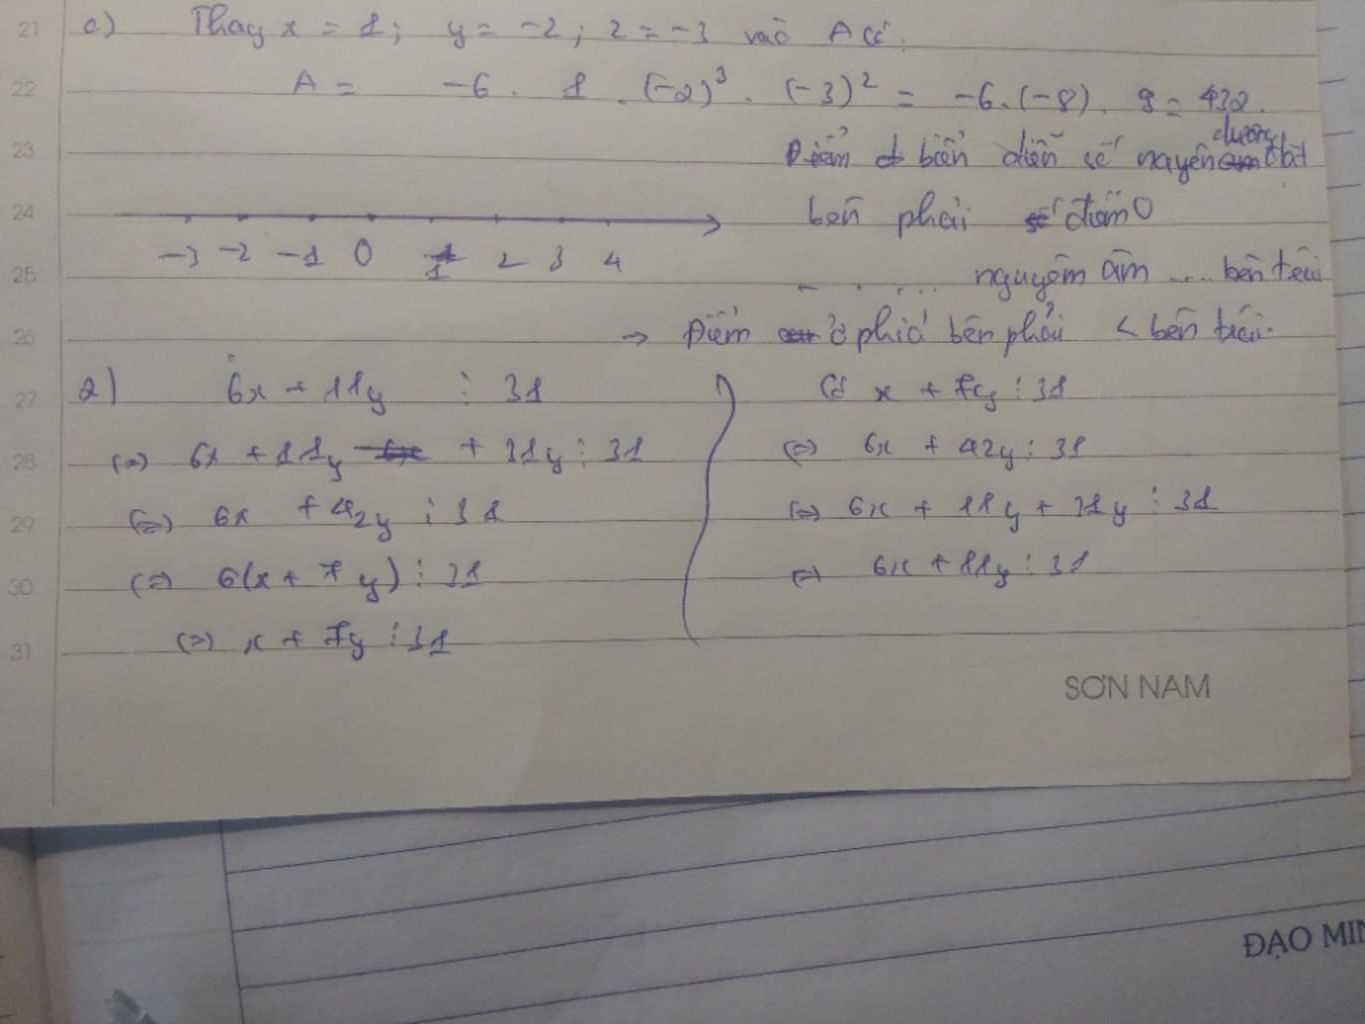 21 c) Thay x = 1; y = -2; z = -3 vào A có:
22 A = -6 . 1 . (-2)³ . (-3)² = -6.(-8). 9 = 432.
23 Điểm biểu diễn số nguyên dương đặt
24 bên phải điểm 0
-3 -2 -1 0 1 2 3 4
25 .... nguyên âm .... bên trái
26 → Điểm ở phía bên phải < bên trái.
27 2) 6x + 11y ⋮ 31
28 (=) 6x + 11y + 31y ⋮ 31
29 (=) 6x + 42y ⋮ 31
30 (=) 6(x + 7y) ⋮ 31
31 (=) x + 7y ⋮ 31
Có x + 7y ⋮ 31
(=) 6x + 42y ⋮ 31
(=) 6x + 11y + 31y ⋮ 31
(=) 6x + 11y ⋮ 31
SƠN NAM
ĐẠO MIN